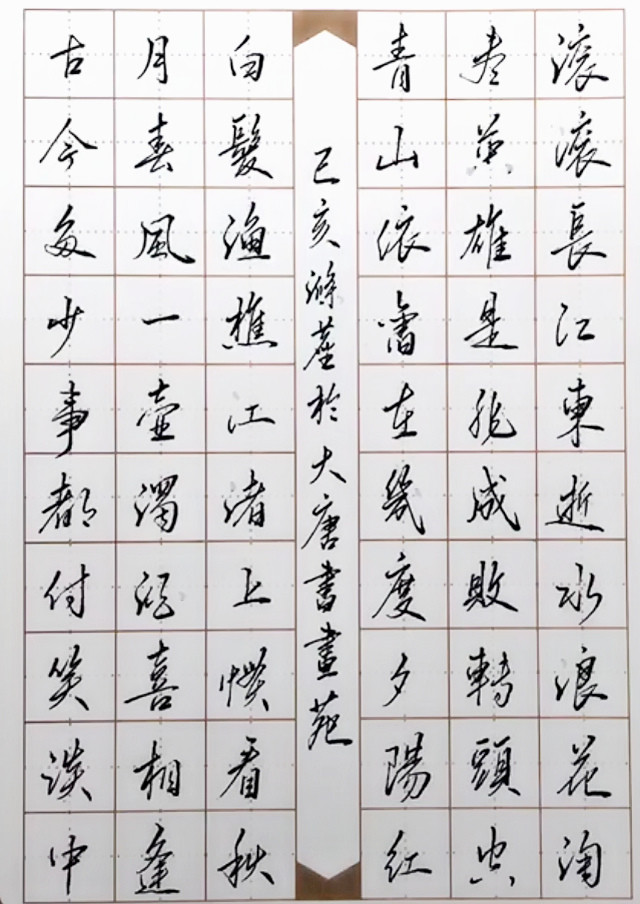 滾滾長江東逝水浪花淘
盡英雄是非成敗轉頭空
青山依舊在幾度夕陽紅
己亥滌塵於大唐書畫苑
白髮漁樵江渚上慣看秋
月春風一壺濁酒喜相逢
古今多少事都付笑談中